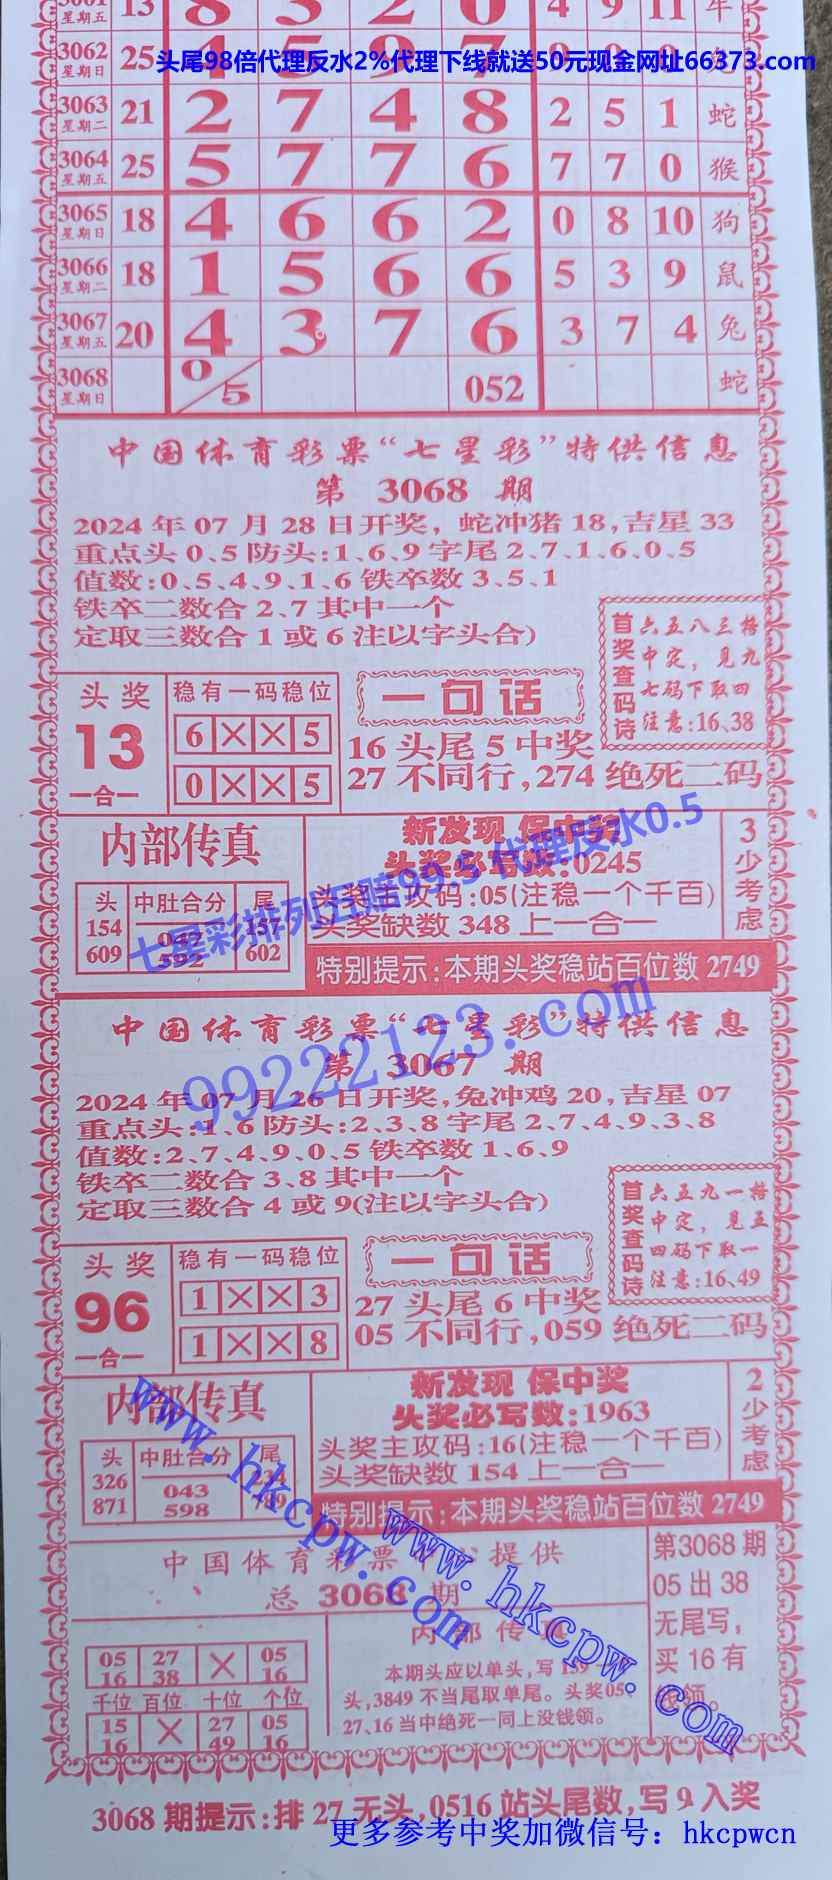 3061 星期五 13 8 3 2 0 4 9 11 牛
3062 星期日 25 4 5 9 7 9 9 0 兔
头尾98倍代理反水2%代理下线就送50元现金网址66373.com
3063 星期二 21 2 7 4 8 2 5 1 蛇
3064 星期五 25 5 7 7 6 7 7 0 猴
3065 星期日 18 4 6 6 2 0 8 10 狗
3066 星期二 18 1 5 6 6 5 3 9 鼠
3067 星期五 20 4 3 7 6 3 7 4 兔
3068 星期日 0/5 052 蛇
中国体育彩票“七星彩”特供信息
第 3068 期
2024年07月28日开奖，蛇冲猪18,吉星33
重点头0、5防头:1、6、9字尾2、7、1、6、0、5
值数:0、5、4、9、1、6铁卒数3、5、1
铁卒二数合2、7其中一个
定取三数合1或6注以字头合)
首奖查码诗
六五八三格
中定，见九
七码下取四
注意:16、38
头奖
13
一合一
稳有一码稳位
6 × × 5
0 × × 5
一句话
16头尾5中奖
27不同行,274绝死二码
内部传真
头 中肚合分 尾
154 047 157
609 592 602
新发现 保中奖
头奖必写数:0245
头奖主攻码:05(注稳一个千百)
头奖缺数348上一合一
3少考虑
特别提示:本期头奖稳站百位数2749
七星彩排列五赔99.5代理反水0.5
99222123.com
中国体育彩票“七星彩”特供信息
第 3067 期
2024年07月26日开奖,兔冲鸡20,吉星07
重点头:1、6防头:2、3、8字尾2、7、4、9、3、8
值数:2、7、4、9、0、5铁卒数1、6、9
铁卒二数合3、8其中一个
定取三数合4或9(注以字头合)
首奖查码诗
六五九一格
中定，见五
四码下取一
注意:16、49
头奖
96
一合一
稳有一码稳位
1 × × 3
1 × × 8
一句话
27头尾6中奖
05不同行,059绝死二码
内部传真
头 中肚合分 尾
326 043 234
871 598 789
新发现 保中奖
头奖必写数:1963
头奖主攻码:16(注稳一个千百)
头奖缺数154上一合一
2少考虑
特别提示:本期头奖稳站百位数2749
www.hkcpw.com
中国体育彩票 提供
总 3068 期
第3068期
05出38
无尾写，
买16有
钱领。
05/16 27/38 × 05/16
千位 百位 十位 个位
15/16 × 27/49 05/16
内部传真
本期头应以单头,写159
头,3849不当尾取单尾。头奖05、
27、16当中绝死一同上没钱领。
www.hkcpw.com
3068期提示:排27无头,0516站头尾数,写9入奖
更多参考中奖加微信号：hkcpwcn